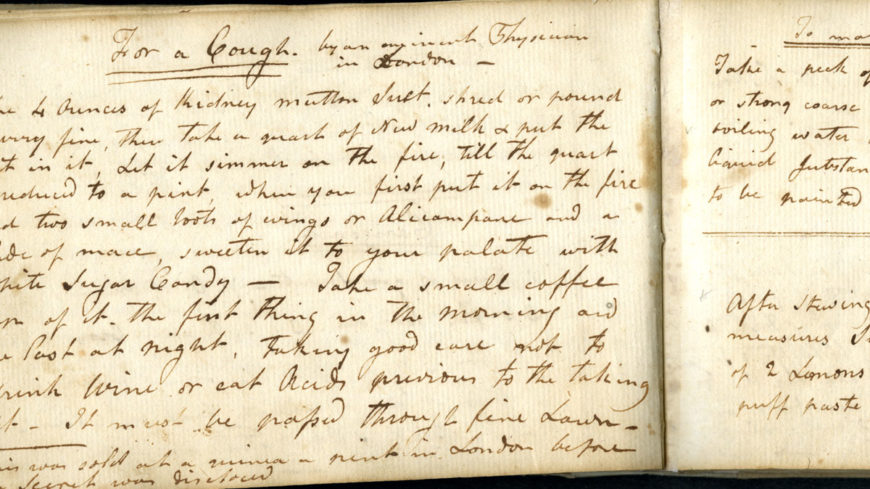 For a Cough. by an eminent Physician
in London —
4 Ounces of Kidney mutton Suet, shred or pound
very fine, then take a quart of New milk & put the
it in it, Let it simmer on the fire, till the quart
reduced to a pint, when you first put it on the fire
two small roots of wings or Alicampane and a
of mace, sweeten it to your palate with
Sugar Candy — Take a small coffee
of it. the first thing in the morning and
Last at night, Taking good care not to
drink Wine or eat Acids previous to the taking
it — It must be passed through fine Lawn —
was sold at a guinea a pint in London before
Secret was disclosed
To ma
Take a peck of
or strong coarse
boiling water
liquid Substan
to be painted
After stewing
measures
of 2 Lemons
puff paste